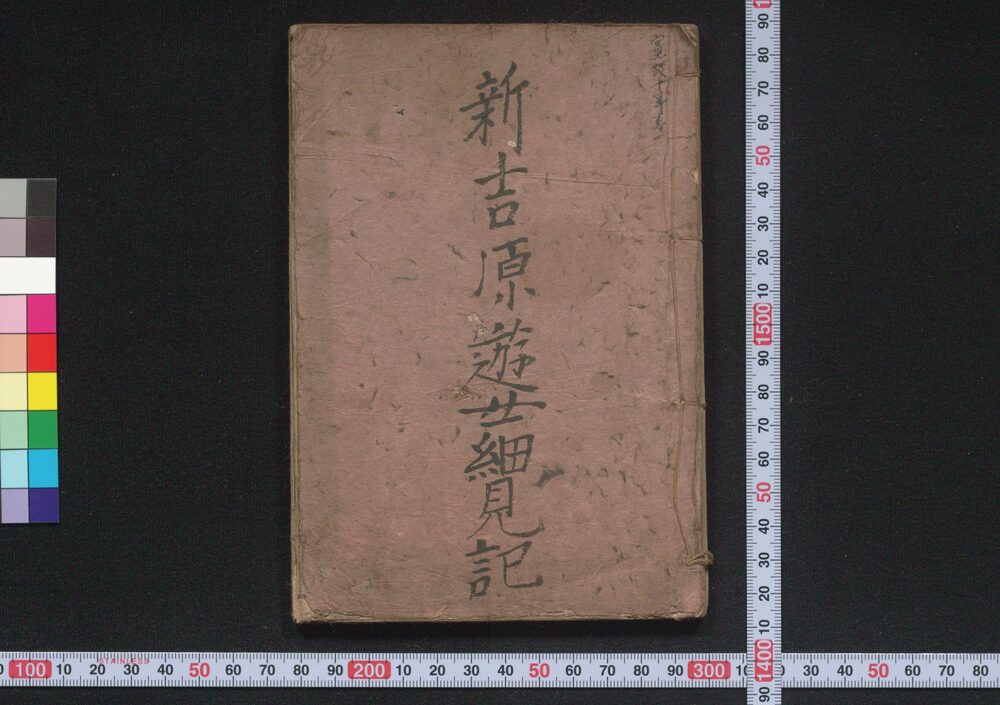 寛政十年春
新吉原遊女細見記
90 80 70 60 50 40 30 20 10 1500 90 80 70 60 50 40 30 20 10 1400 90
100 10 20 30 40 50 60 70 80 90 200 10 20 30 40 50 60 70 80 90 300 30 40 50 60 70 80
STAINLESS